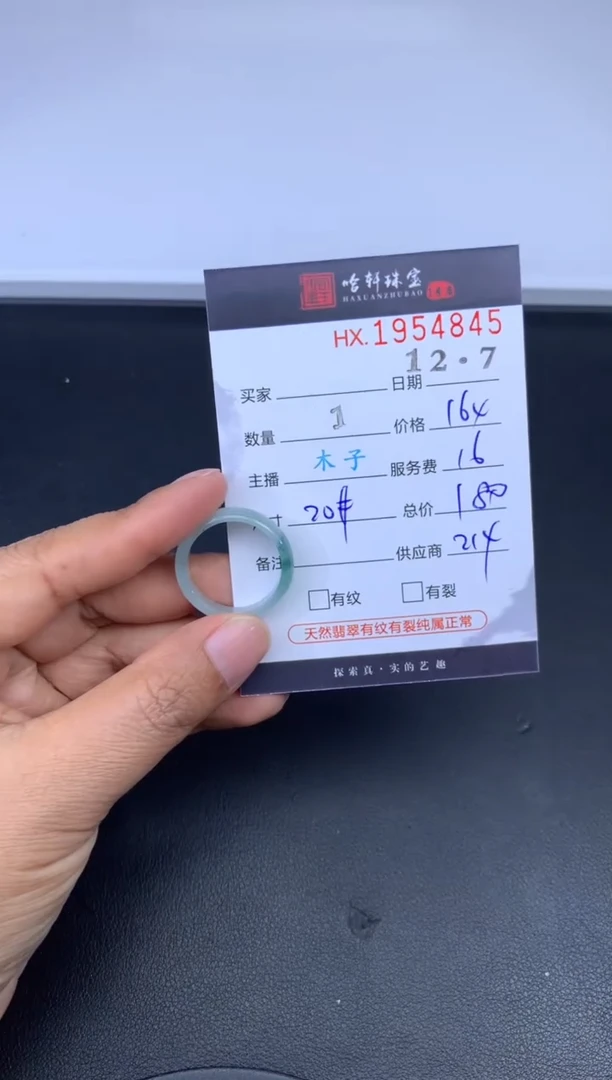 哈轩珠宝
HAXUANZHUBAO
HX.1954845
买家 日期 12·7
数量 1 价格 164
主播 木子 服务费 16
寸 20# 总价 180
备注 供应商 214
有纹 有裂
天然翡翠有纹有裂纯属正常
探索真·实的艺趣